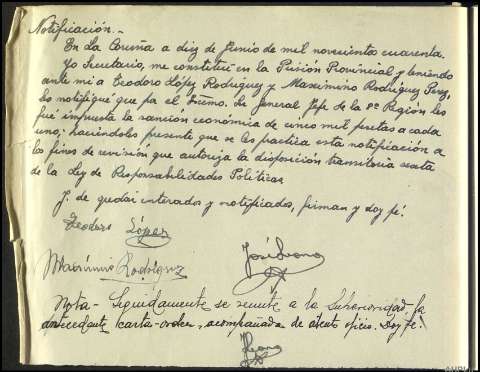 Notificación.-
En La Coruña a diez de Junio de mil novecientos cuarenta.
Yo Secretario, me constituí en la Prisión Provincial y teniendo
ante mi a Teodoro López Rodriguez y Maximino Rodriguez Perez,
les notifiqué que por el Excmo. Sr. General Jefe de la 8ª Región les
fué impuesta la sanción económica de cinco mil pesetas a cada
uno; haciéndoles presente que se les practica esta notificación a
los fines de revisión que autoriza la disposición transitoria sexta
de la Ley de Responsabilidades Políticas
Y de quedar enterados y notificados, firman y doy fé.
Teodoro López
Maximino Rodriguez
José
Nota- Seguidamente se remite a la Superioridad la
antecedente carta-orden, acompañada de atento oficio. Doy fé.